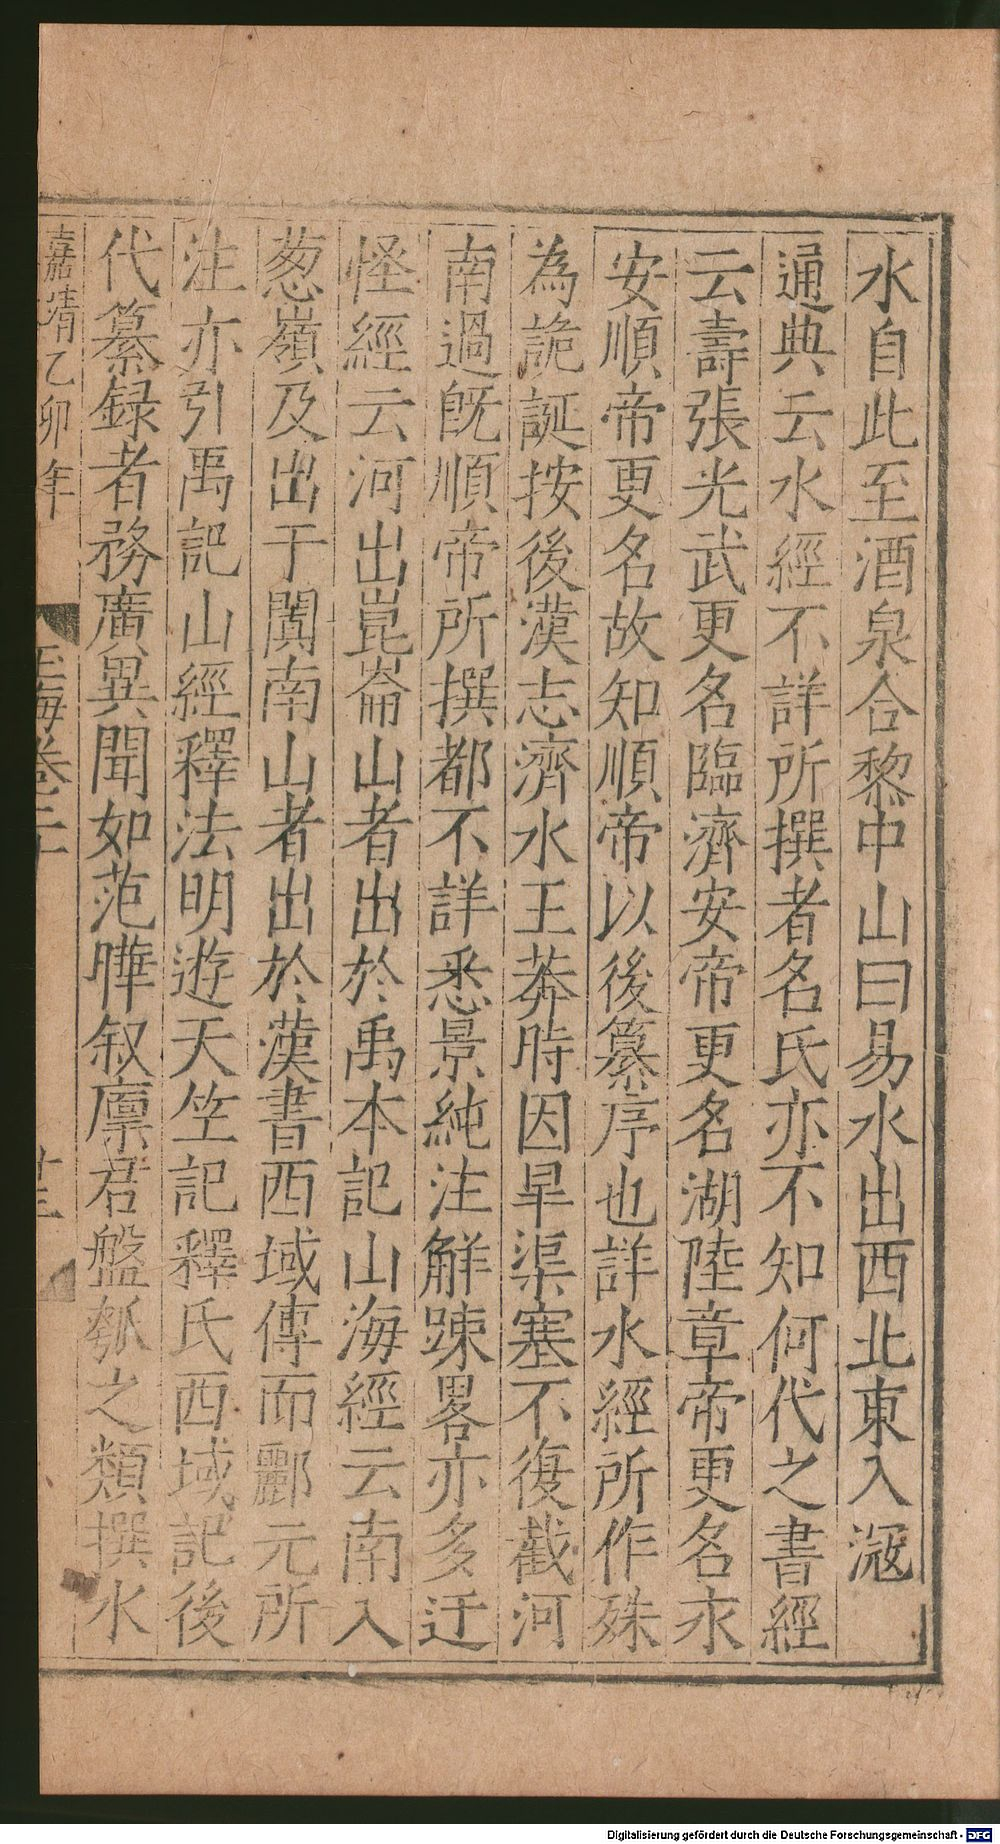 水自此至酒泉合黎中山曰易水出西北東入㴲
通典云水經不詳所撰者名氏亦不知何代之書經
云壽張光武更名臨濟安帝更名湖陸章帝更名永
安順帝更名故知順帝以後纂序也詳水經所作殊
為詭誕按後漢志濟水王莽時因旱渠塞不復截河
南過旣順帝所撰都不詳悉景純注解踈畧亦多迂
怪經云河出崑崙山者出於禹本記山海經云南入
葱嶺及出于闐南山者出於漢書西域傳而酈元所
注亦引禹記山經釋法明遊天竺記釋氏西域記後
代纂録者務廣異聞如范曄叙廪君盤瓠之類撰水
嘉靖乙卯年
玉海卷二十
廿三
Digitalisierung gefördert durch die Deutsche Forschungsgemeinschaft - DFG